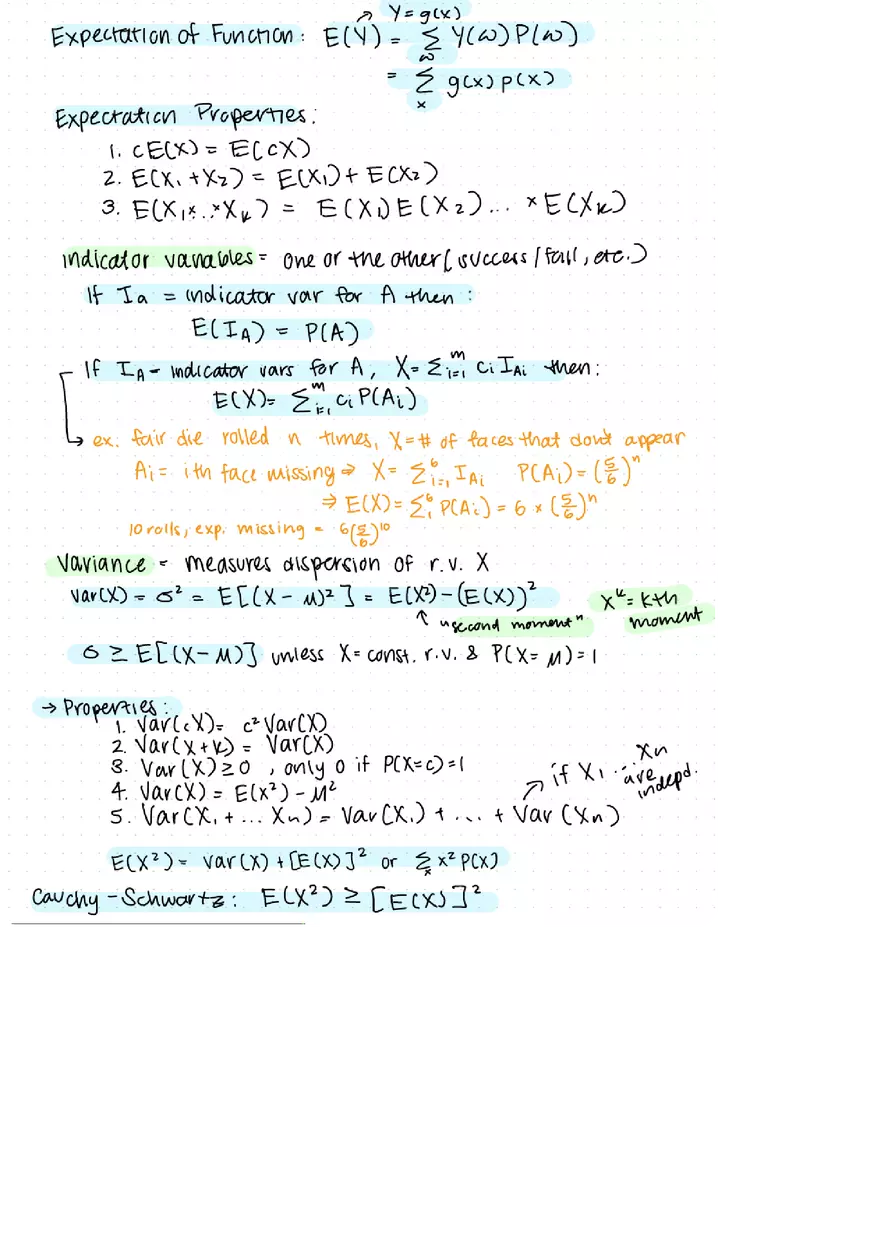 Y = g(x)
Expectation of Function: E(Y) = Σ_ω Y(ω) P(ω)
= Σ_x g(x) p(x)
Expectation Properties:
1. cE(X) = E(cX)
2. E(X₁ + X₂) = E(X₁) + E(X₂)
3. E(X₁ × .. × Xₖ) = E(X₁) E(X₂) ... × E(Xₖ)
indicator variables = one or the other (success / fail, etc.)
If Ia = indicator var for A then :
E(I_A) = P(A)
If I_A - indicator vars for A, X = Σ_{i=1}^m cᵢ I_{Ai} then:
E(X) = Σ_{i=1}^m cᵢ P(Aᵢ)
↳ ex. fair die rolled n times, X = # of faces that don't appear
Aᵢ = ith face missing ⇒ X = Σ_{i=1}^6 I_{Ai} P(Aᵢ) = (5/6)ⁿ
⇒ E(X) = Σ_1^6 P(Aᵢ) = 6 × (5/6)ⁿ
10 rolls, exp. missing = 6(5/6)¹⁰
Variance = measures dispersion of r.v. X
var(X) = σ² = E[(X - μ)²] = E(X²) - (E(X))²
↑ "second moment"
Xᵏ = kth moment
σ ≥ E[(X - μ)] unless X = const. r.v. & P(X = μ) = 1
→ Properties:
1. Var(cX) = c² Var(X)
2. Var(X + k) = Var(X)
3. Var(X) ≥ 0 , only 0 if P(X = c) = 1
4. Var(X) = E(X²) - μ²
5. Var(X₁ + ... Xₙ) = Var(X₁) + ... + Var(Xₙ)
↗ if X₁ ... Xₙ are indepd.
E(X²) = Var(X) + [E(X)]² or Σ_x x² P(x)
Cauchy - Schwartz: E(X²) ≥ [E(X)]²